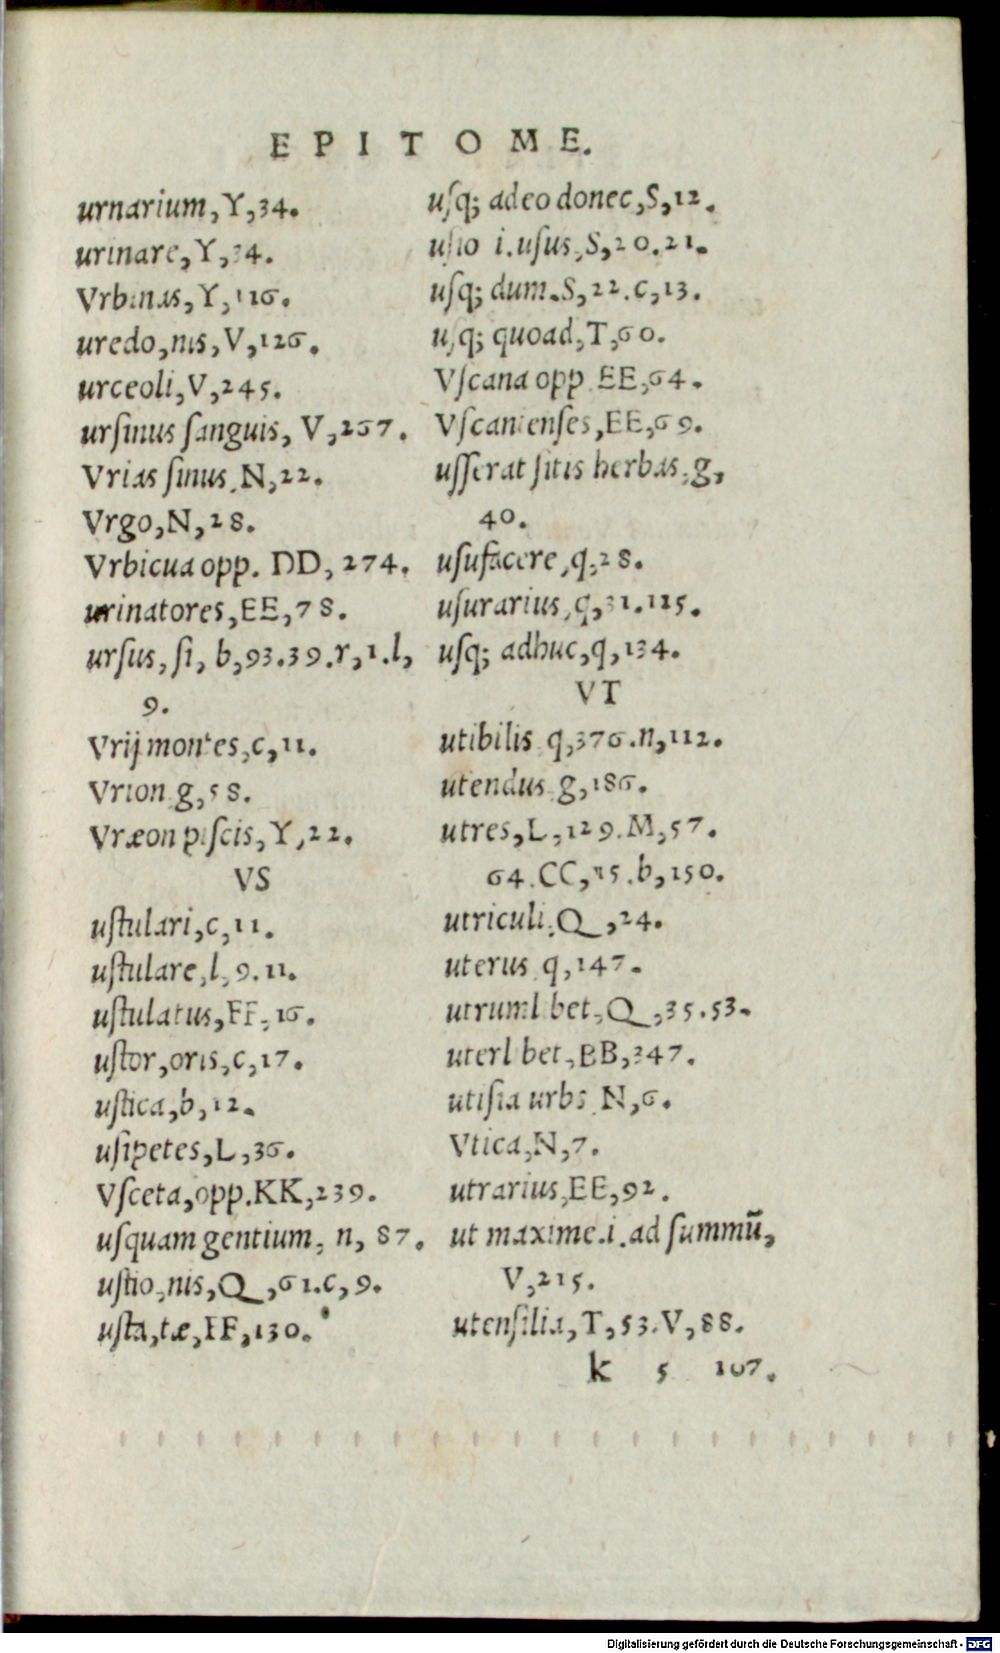 EPITOME.
urnarium, Y, 34.
urinare, Y, 34.
Vrbinas, Y, 116.
uredo, nis, V, 126.
urceoli, V, 245.
urſinus ſanguis, V, 267.
Vrias ſinus, N, 22.
Vrgo, N, 28.
Vrbicua opp. DD, 274.
urinatores, EE, 78.
urſus, ſi, b, 93.39.r, 1.l,
9.
Vrij montes, c, 11.
Vrion g, 58.
Vræon piſcis, Y, 22.
VS
uſtulari, c, 11.
uſtulare, l, 9.11.
uſtulatus, FF, 16.
uſtor, oris, c, 17.
uſtica, b, 12.
uſipetes, L, 36.
Vſceta, opp. KK, 239.
uſquam gentium, n, 87.
uſtio, nis, Q, 61.c, 9.
uſta, tæ, FF, 130.
uſq; adeo donec, S, 12.
uſio i. uſus, S, 20.21.
uſq; dum. S, 22.c, 13.
uſq; quoad, T, 60.
Vſcana opp. EE, 64.
Vſcanienſes, EE, 69.
uſſerat ſitis herbas, g,
40.
uſufacere, q, 28.
uſurarius, q, 31.125.
uſq; adhuc, q, 134.
VT
utibilis q, 376.n, 112.
utendus g, 186.
utres, L, 129. M, 57.
64. CC, 15.b, 150.
utriculi, Q, 24.
uterus q, 147.
utruml bet, Q, 35.53.
uterl bet, BB, 347.
utiſia urbs, N, 6.
Vtica, N, 7.
utrarius, EE, 92.
ut maxime .i. ad ſummū,
V, 215.
utenſilia, T, 53. V, 88.
k 5 107.
Digitalisierung gefördert durch die Deutsche Forschungsgemeinschaft - DFG